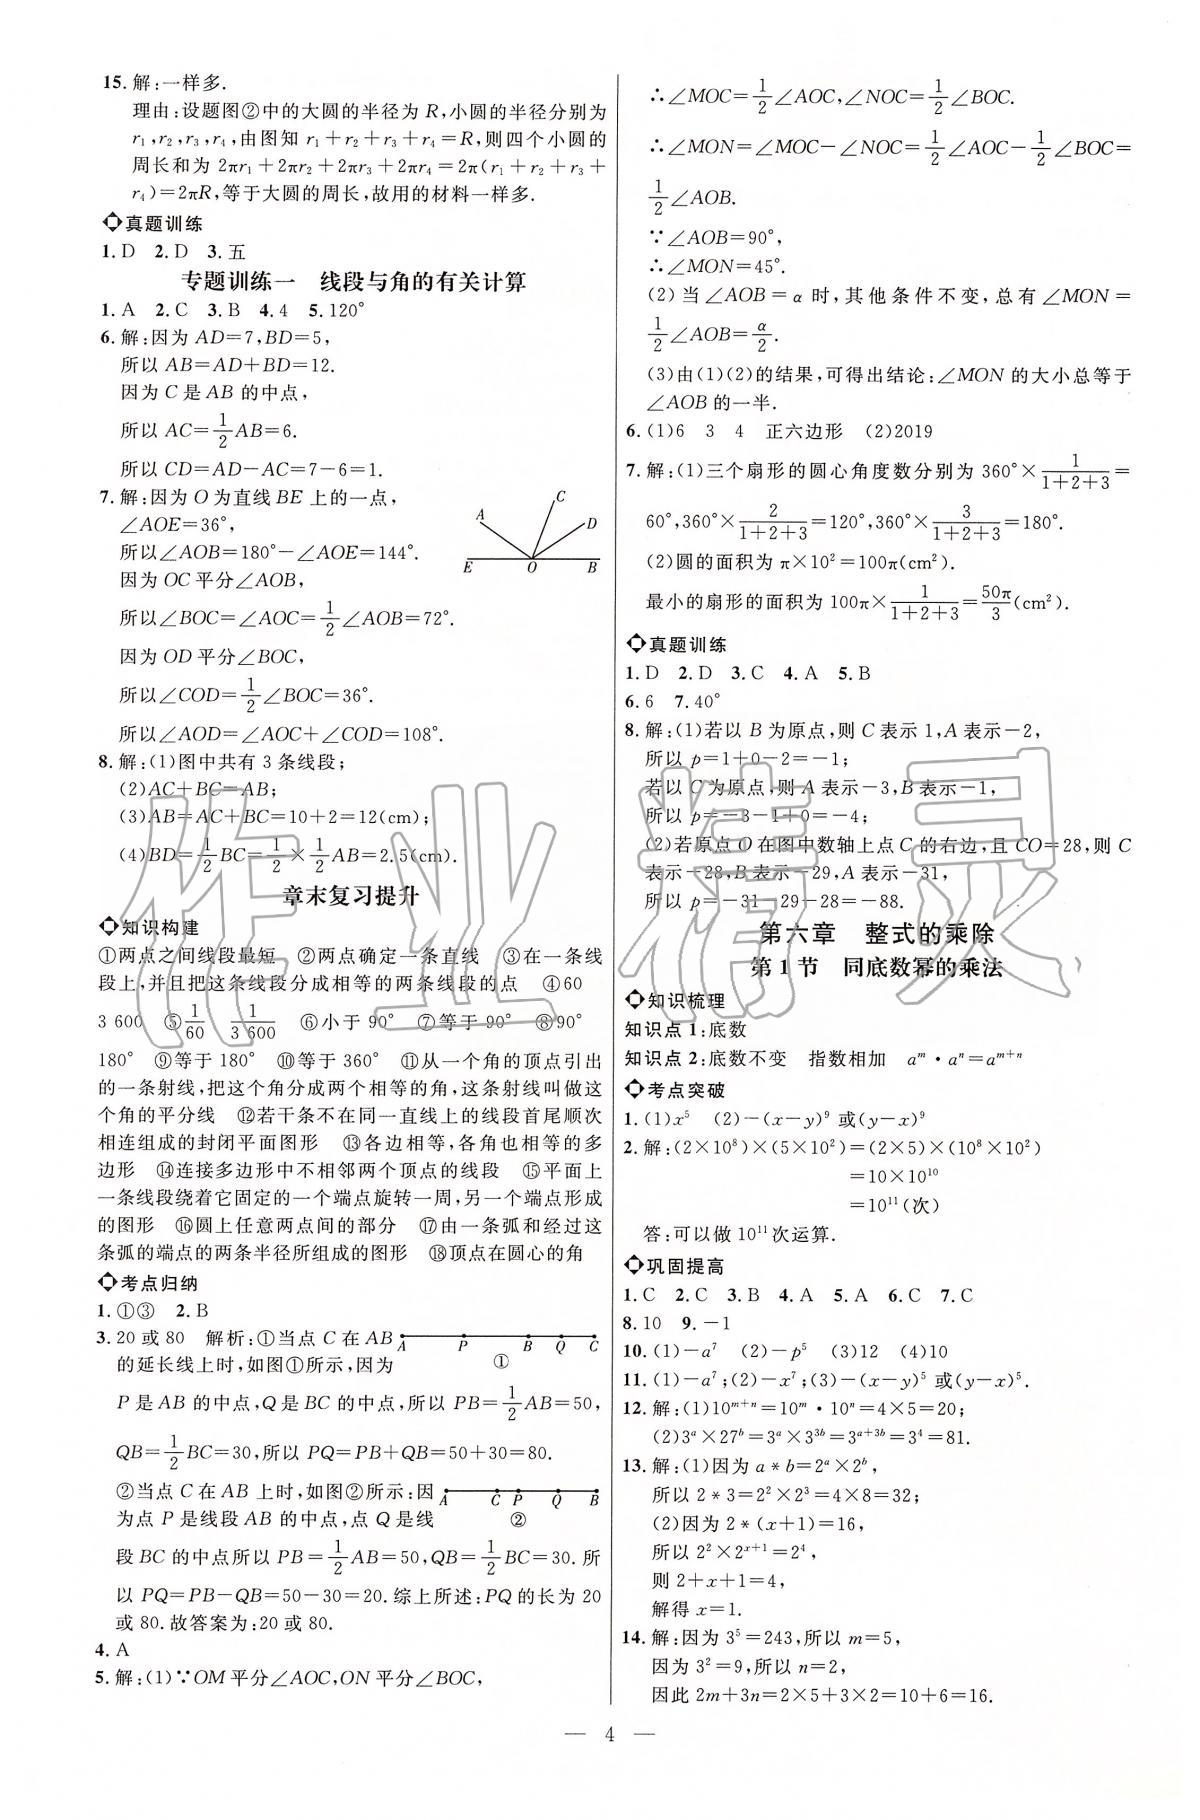 15. 解:一样多.
理由:设题图②中的大圆的半径为 R,小圆的半径分别为
r₁,r₂,r₃,r₄,由图知 r₁+r₂+r₃+r₄=R,则四个小圆的
周长和为 2πr₁+2πr₂+2πr₃+2πr₄=2π(r₁+r₂+r₃+
r₄)=2πR,等于大圆的周长,故用的材料一样多.
真题训练
1. D 2. D 3. 五
专题训练一 线段与角的有关计算
1. A 2. C 3. B 4. 4 5. 120°
6. 解:因为 AD=7,BD=5,
所以 AB=AD+BD=12.
因为 C 是 AB 的中点,
所以 AC=1/2AB=6.
所以 CD=AD-AC=7-6=1.
7. 解:因为 O 为直线 BE 上的一点,
∠AOE=36°,
所以∠AOB=180°-∠AOE=144°.
因为 OC 平分∠AOB,
所以∠BOC=∠AOC=1/2∠AOB=72°.
因为 OD 平分∠BOC,
所以∠COD=1/2∠BOC=36°.
所以∠AOD=∠AOC+∠COD=108°.
A C D E O B
8. 解:(1)图中共有 3 条线段;
(2)AC+BC=AB;
(3)AB=AC+BC=10+2=12(cm);
(4)BD=1/2BC=1/2×1/2AB=2.5(cm).
章末复习提升
知识构建
①两点之间线段最短 ②两点确定一条直线 ③在线段
上,并且把这条线段分成相等的两条线段的点 ④60
3 600 ⑤1/60 1/3 600 ⑥小于 90° ⑦等于 90° ⑧90°
180° ⑨等于 180° ⑩等于 360° ⑪从一个角的顶点引出
的一条射线,把这个角分成两个相等的角,这条射线叫做这
个角的平分线 ⑫若干条不在同一直线上的线段首尾顺次
相连组成的封闭平面图形 ⑬各边相等,各角也相等的多
边形 ⑭连接多边形中不相邻两个顶点的线段 ⑮平面上
一条线段绕着它固定的一个端点旋转一周,另一个端点形成
的图形 ⑯圆上任意两点间的部分 ⑰由一条弧和经过这
条弧的端点的两条半径所组成的图形 ⑱顶点在圆心的角
考点归纳
1. ①③ 2. B
3. 20 或 80 解析:①当点 C 在 AB
A P B Q C
的延长线上时,如图①所示,因为
①
P 是 AB 的中点,Q 是 BC 的中点,所以 PB=1/2AB=50,
QB=1/2BC=30,所以 PQ=PB+QB=50+30=80.
②当点 C 在 AB 上时,如图②所示:因
A C P Q B
为点 P 是线段 AB 的中点,点 Q 是线
②
段 BC 的中点所以 PB=1/2AB=50,QB=1/2BC=30. 所
以 PQ=PB-QB=50-30=20. 综上所述:PQ 的长为 20
或 80. 故答案为:20 或 80.
4. A
5. 解:(1)∵OM 平分∠AOC,ON 平分∠BOC,
∴∠MOC=1/2∠AOC,∠NOC=1/2∠BOC.
∴∠MON=∠MOC-∠NOC=1/2∠AOC-1/2∠BOC=
1/2∠AOB.
∵∠AOB=90°,
∴∠MON=45°.
(2)当∠AOB=α 时,其他条件不变,总有∠MON=
1/2∠AOB=α/2.
(3)由(1)(2)的结果,可得出结论:∠MON 的大小总等于
∠AOB 的一半.
6. (1)6 3 4 正六边形 (2)2019
7. 解:(1)三个扇形的圆心角度数分别为 360°×1/(1+2+3)=
60°,360°×2/(1+2+3)=120°,360°×3/(1+2+3)=180°.
(2)圆的面积为 π×10²=100π(cm²).
最小的扇形的面积为 100π×1/(1+2+3)=50π/3(cm²).
真题训练
1. D 2. D 3. C 4. A 5. B
6. 6 7. 40°
8. 解:(1)若以 B 为原点,则 C 表示 1,A 表示-2,
所以 p=1+0-2=-1;
若以 C 为原点,则 A 表示-3,B 表示-1,
所以 p=-3-1+0=-4;
(2)若原点 O 在图中数轴上点 C 的右边,且 CO=28,则 C
表示-28,B 表示-29,A 表示-31,
所以 p=-31-29-28=-88.
第六章 整式的乘除
第 1 节 同底数幂的乘法
知识梳理
知识点 1:底数
知识点 2:底数不变 指数相加 aᵐ·aⁿ=aᵐ⁺ⁿ
考点突破
1. (1)x⁵ (2)-(x-y)⁹ 或(y-x)⁹
2. 解:(2×10⁸)×(5×10²)=(2×5)×(10⁸×10²)
=10×10¹⁰
=10¹¹(次)
答:可以做 10¹¹次运算.
巩固提高
1. C 2. C 3. B 4. A 5. A 6. C 7. C
8. 10 9. -1
10. (1)-a⁷ (2)-p⁵ (3)12 (4)10
11. (1)-a⁷;(2)-x⁷;(3)-(x-y)⁵ 或(y-x)⁵.
12. 解:(1)10ᵐ⁺ⁿ=10ᵐ·10ⁿ=4×5=20;
(2)3ᵃ×27ᵇ=3ᵃ×3³ᵇ=3ᵃ⁺³ᵇ=3⁴=81.
13. 解:(1)因为 a*b=2ᵃ×2ᵇ,
所以 2*3=2²×2³=4×8=32;
(2)因为 2*(x+1)=16,
所以 2²×2ˣ⁺¹=2⁴,
则 2+x+1=4,
解得 x=1.
14. 解:因为 3⁵=243,所以 m=5,
因为 3²=9,所以 n=2,
因此 2m+3n=2×5+3×2=10+6=16.
— 4 —
作业精灵